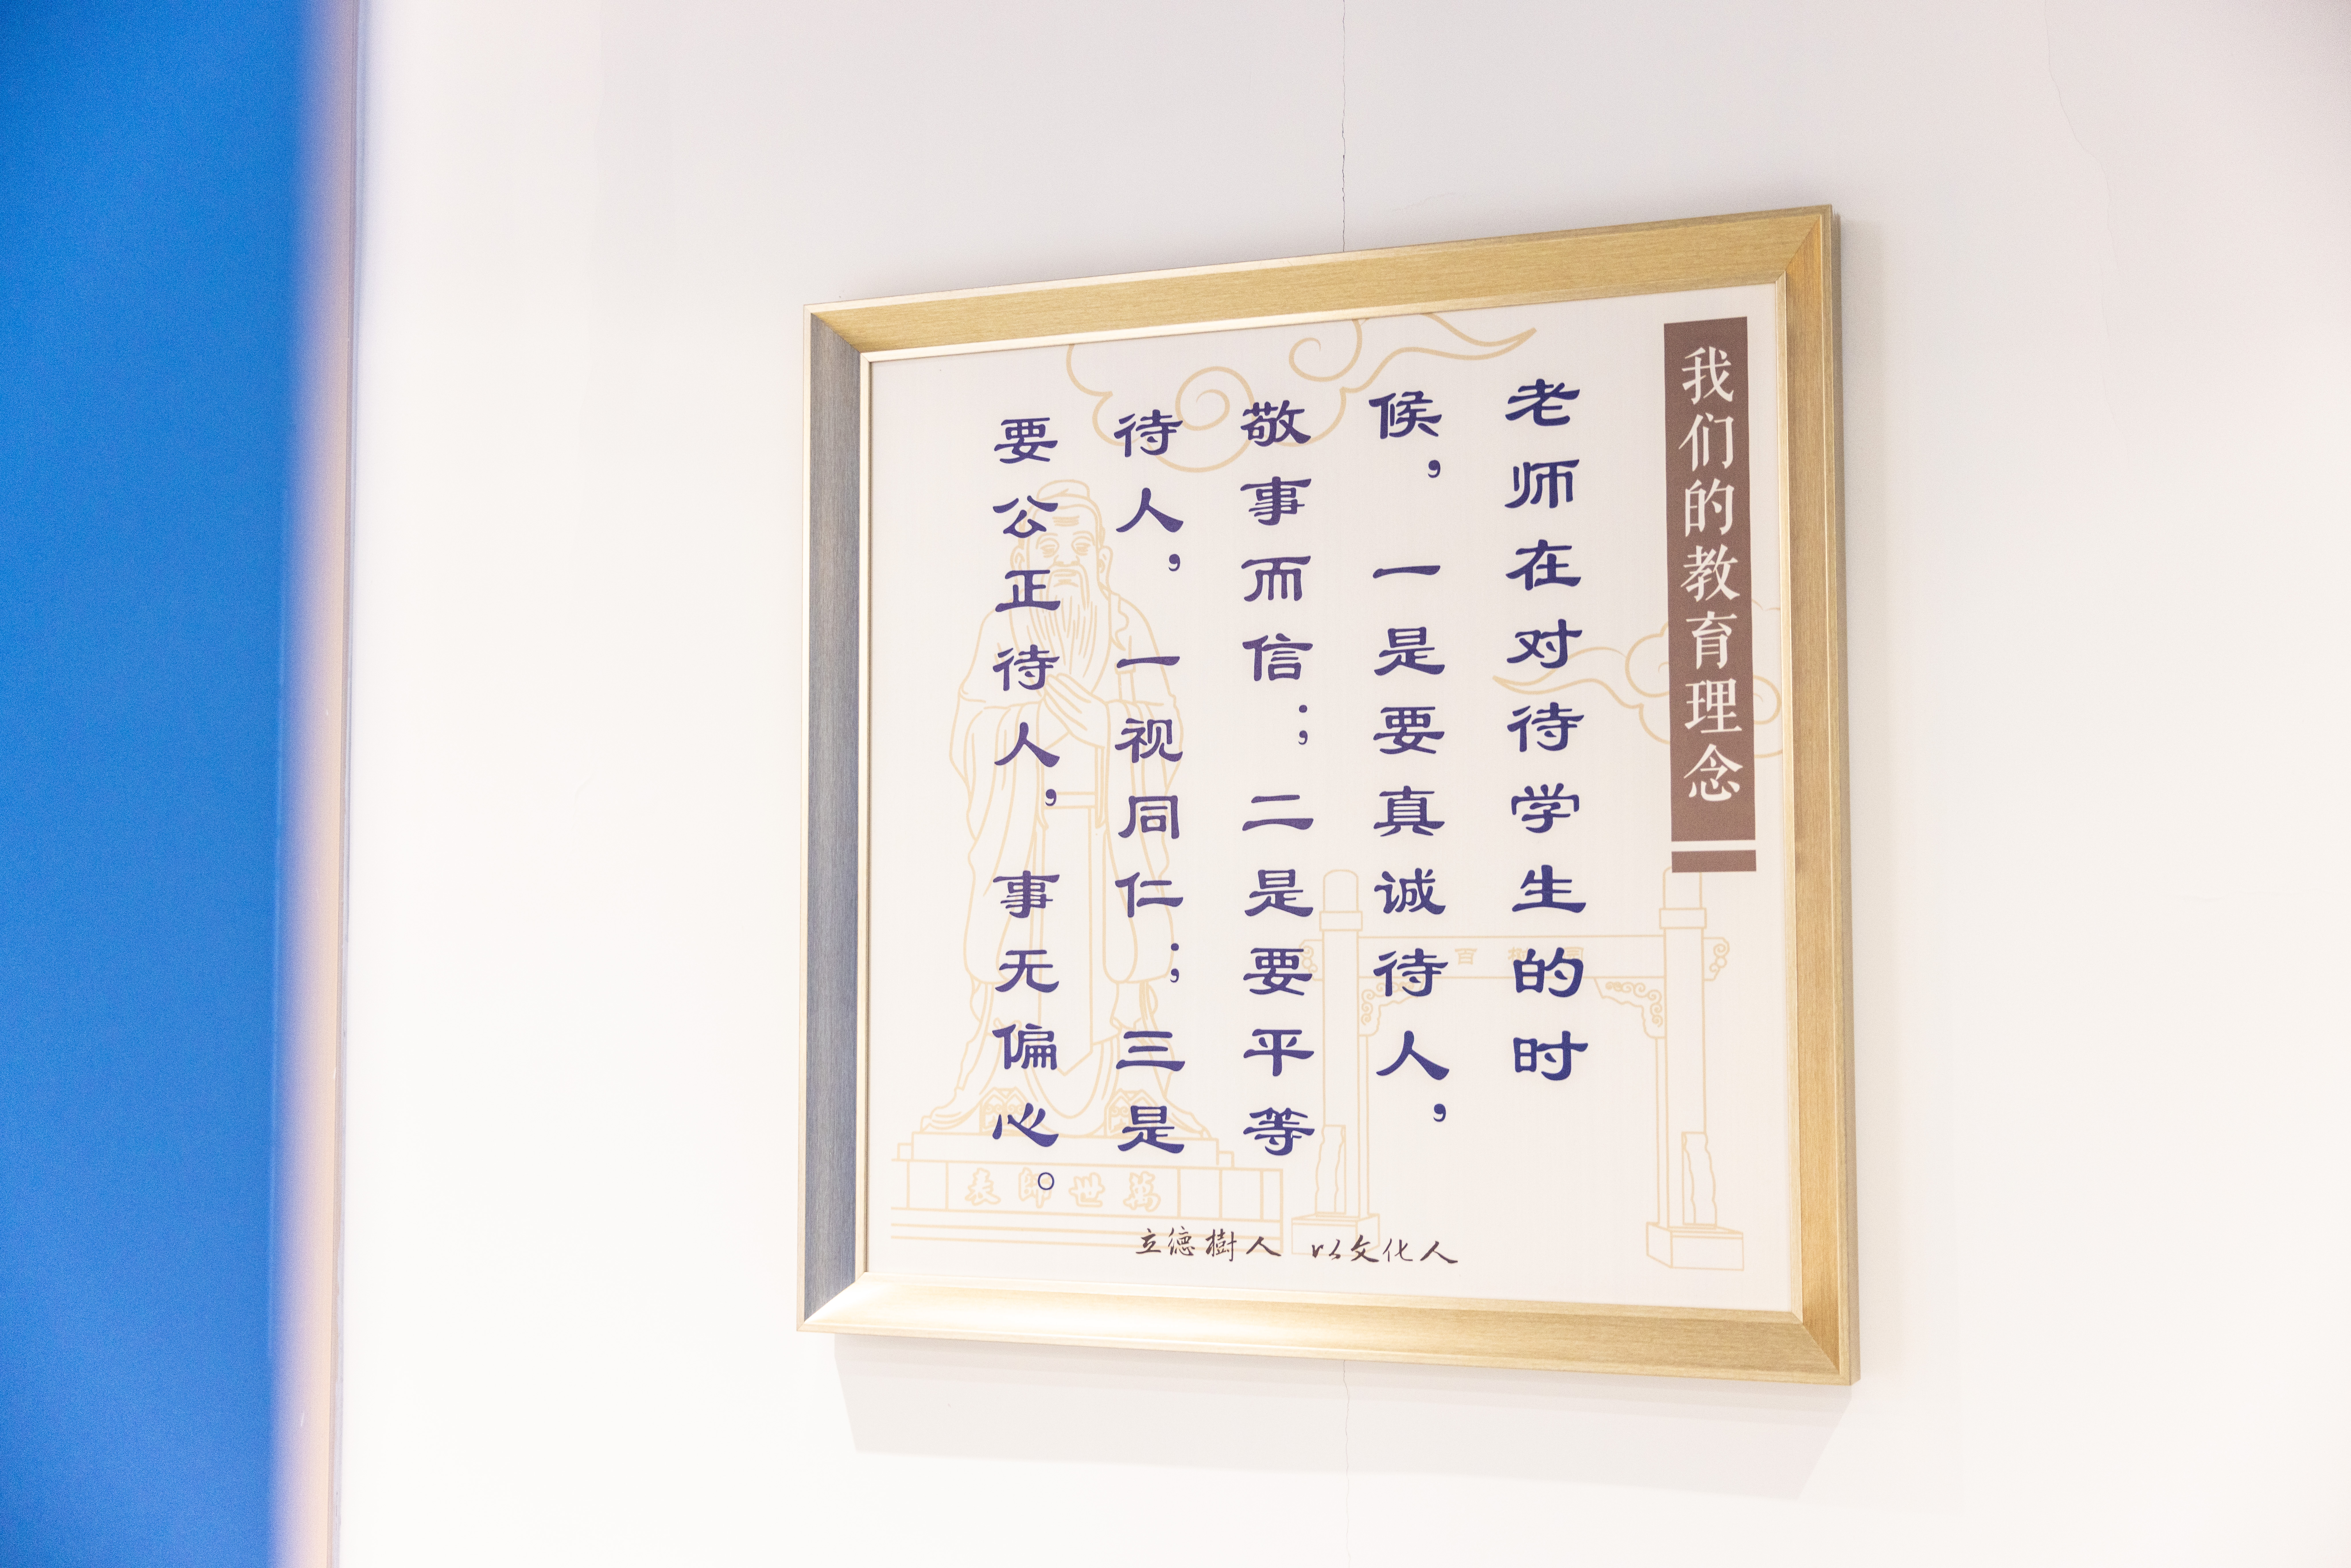 我们的教育理念
老师在对待学生的时
候，一是要真诚待人，
敬事而信；二是要平等
待人，一视同仁；三是
要公正待人，事无偏心。
萬世師表
立德樹人 以文化人